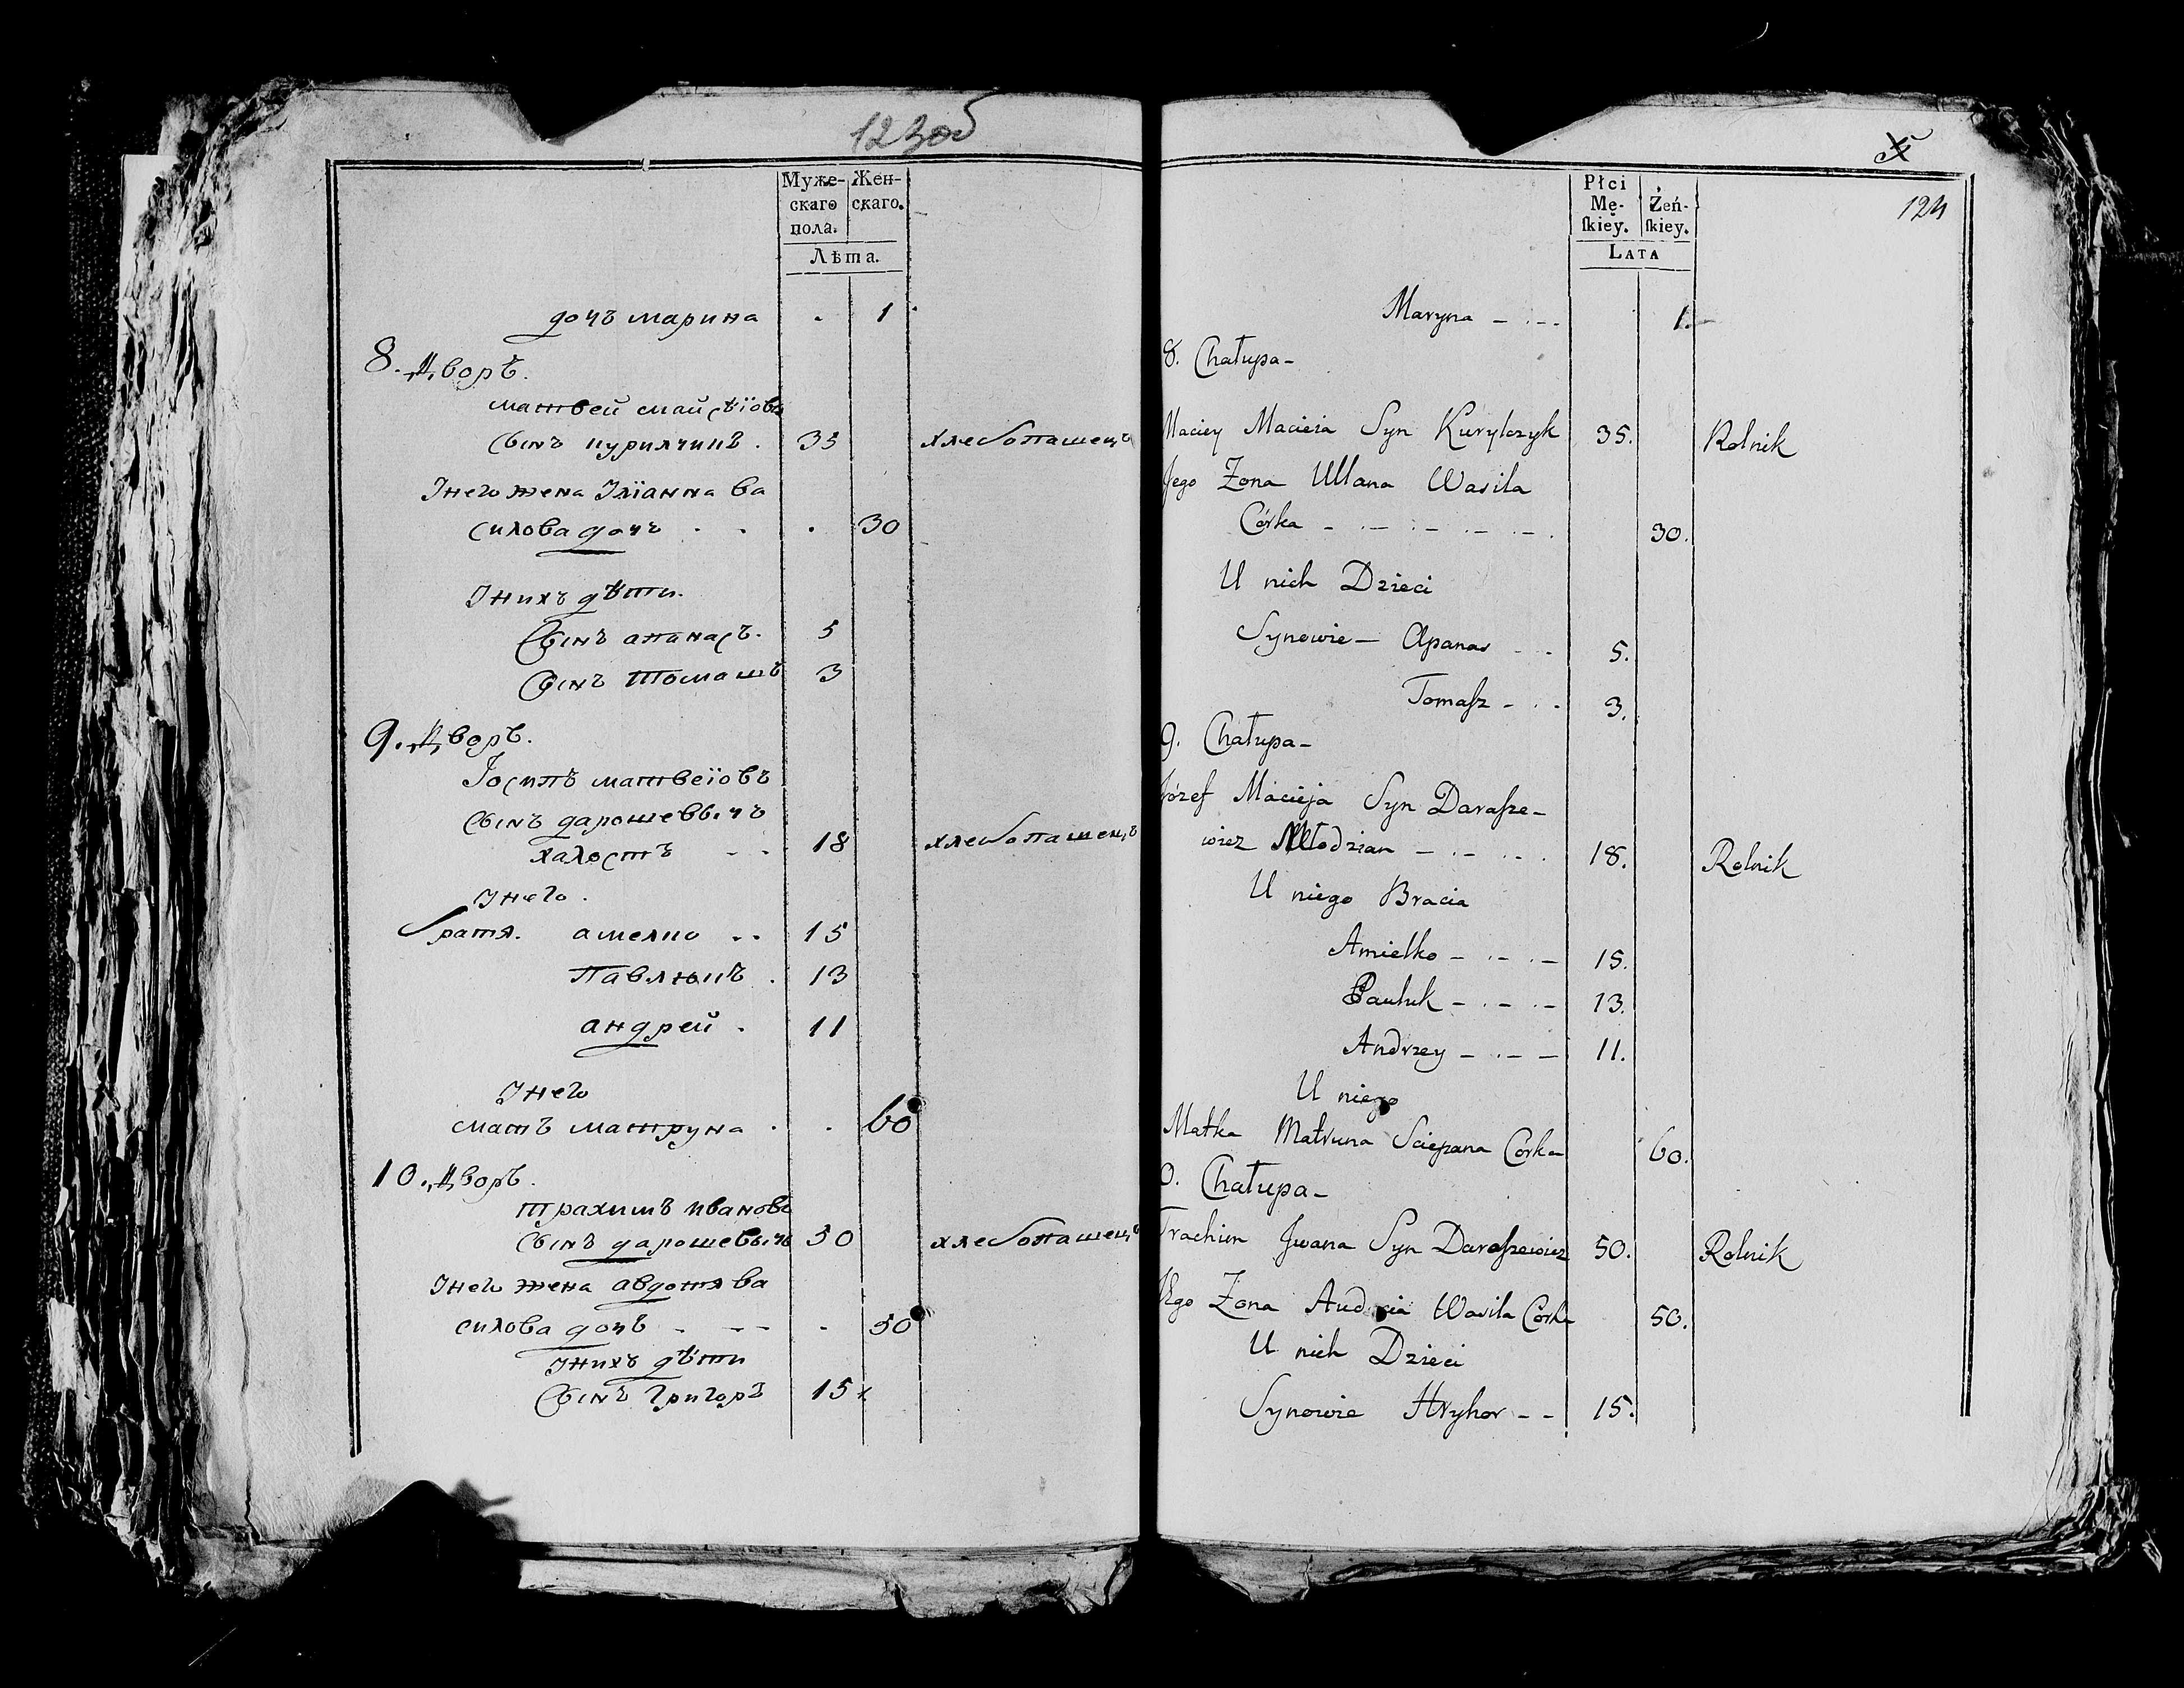 123об
Муже- Жен-
скаго скаго.
пола.
Лѣта.
дочъ марина . 1
8. Дворъ.
матвей матвѣіовъ
Сынъ курилчикъ . 35 хлебопашецъ
Унего жена Улїанна ва
силова дочъ . . . 30
Унихъ дѣти.
Сынъ апанасъ. 5
Сынъ томашъ 3
9. Дворъ.
Іосипъ матвеіовъ
Сынъ дарошевычъ
халостъ - - 18 хлебопашецъ
Унего.
братя. амелко .. 15
Павлюкъ . 13
андрей . 11
Унего
матъ матруна . . 60
10. Дворъ.
трахимъ ивановъ
Сынъ дарошевычъ 50 хлебопашецъ
Унего жена авдотя ва
силова дочъ - - - - . 50
Унихъ дѣти
Сынъ григоръ 15
124
Płci
Mę- Żeń-
skiey. skiey.
LATA
Maryna - . - - 1.
8. Chałupa -
Maciey Macieia Syn Kurylczyk 35. Rolnik
Jego Żona Ullana Wasila
Córka - . - . - . - . - . 30.
U nich Dzieci
Synowie - Apanas - - 5.
Tomasz - . - 3.
9. Chałupa -
Józef Macieja Syn Darasze-
wicz Młodzian - . - . . . 18. Rolnik
U niego Bracia
Amielko - . - . - 15.
Pauluk - . - . - 13.
Andrzey - . - - 11.
U niego
Matka Matruna Sciepana Corka 60.
0. Chałupa -
Trachim Jwana Syn Daraszewicz 50. Rolnik
Jego Żona Audocia Wasila Córka 50.
U nich Dzieci
Synowie Hryhor - - 15.